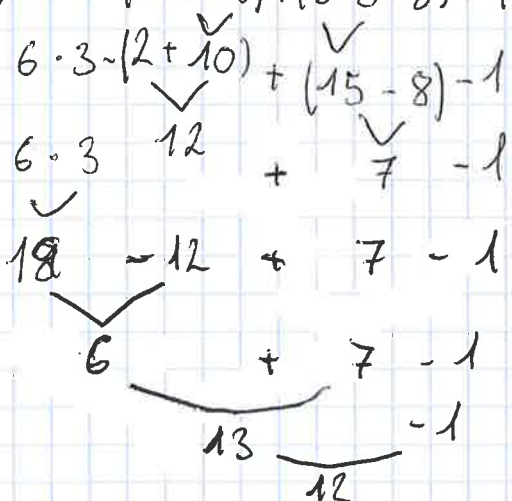 6 · 3 - (2 + 10) + (15 - 8) - 1
6 · 3 12 + 7 - 1
18 - 12 + 7 - 1
6 + 7 - 1
13 - 1
12